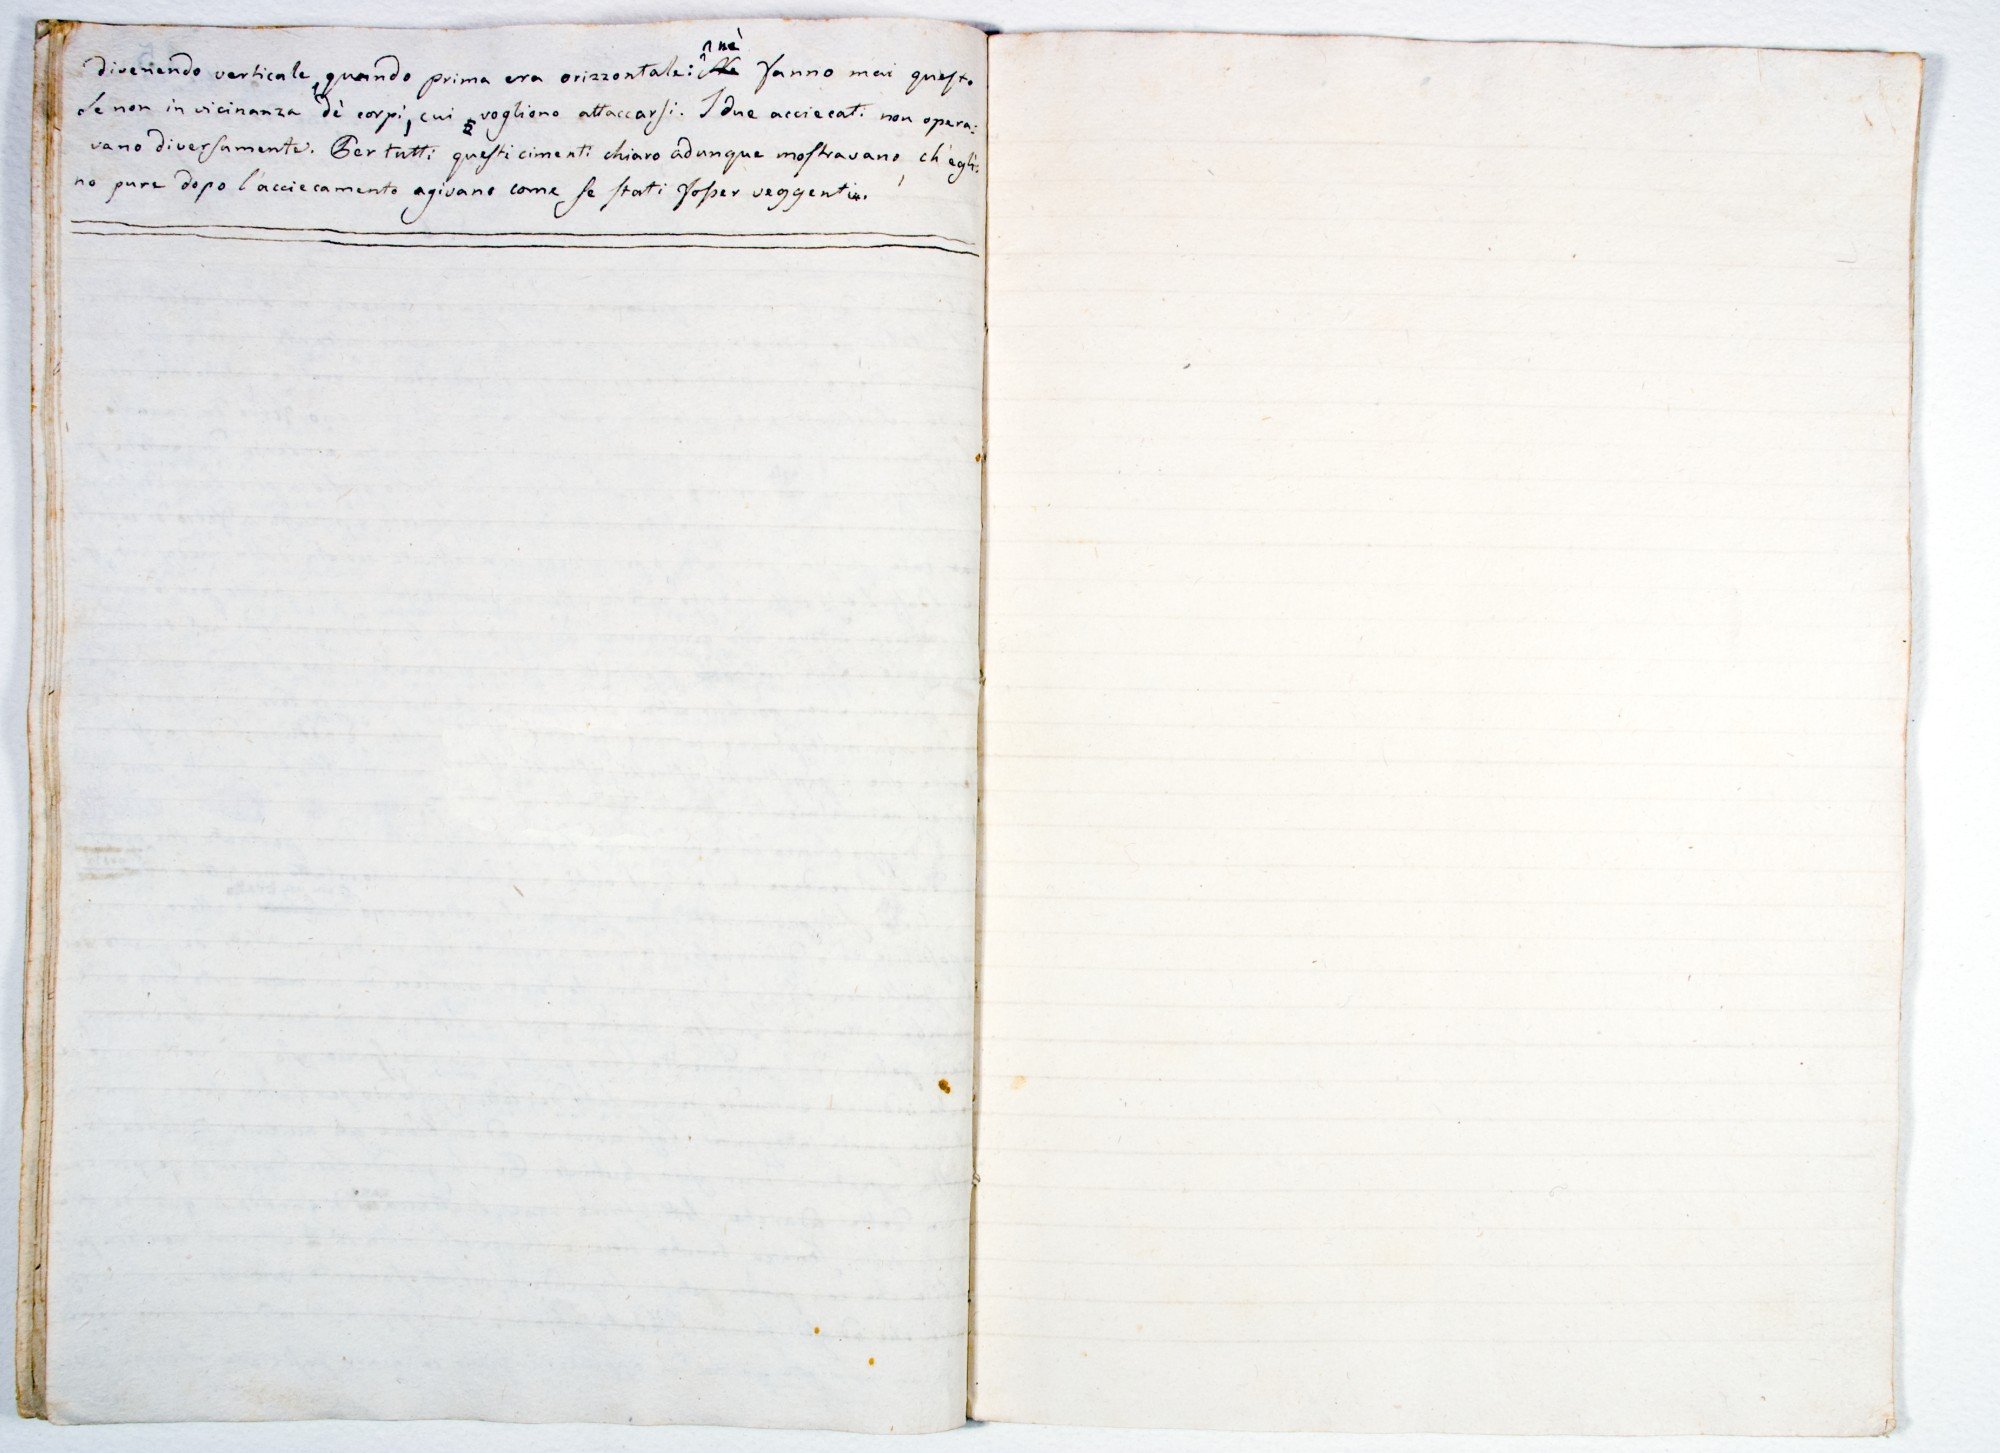 divenendo verticale, quando prima era orizzontale: nè fanno mai questo
se non in vicinanza dè corpi, cui vogliono attaccarsi. I due acciecati non opera:
vano diversamente. Per tutti questi cimenti chiaro adunque mostravano, ch'egli:
no pure dopo l'acciecamento agivano come se stati fosser veggenti.